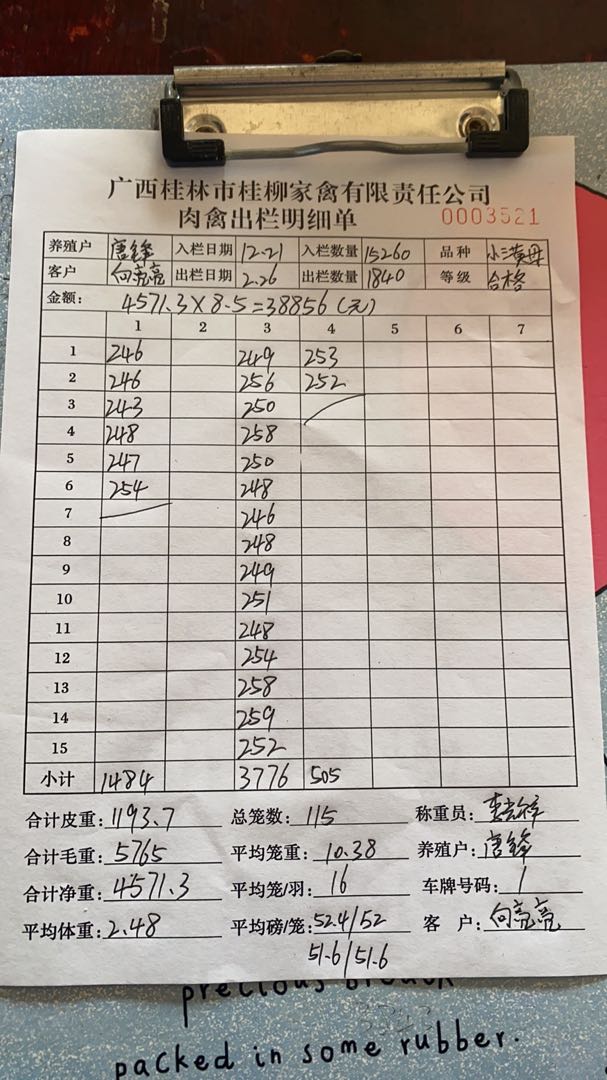 广西桂林市桂柳家禽有限责任公司
肉禽出栏明细单 0003521
养殖户 唐锋 入栏日期 12.21 入栏数量 15260 品种 小三黄母
客户 向亮亮 出栏日期 2.26 出栏数量 1840 等级 合格
金额: 4571.3×8.5=38856(元)
1 2 3 4 5 6 7
1 246 249 253
2 246 256 252
3 243 250
4 248 258
5 247 250
6 254 248
7 246
8 248
9 249
10 251
11 248
12 254
13 258
14 259
15 252
小计 1484 3776 505
合计皮重: 1193.7 总笼数: 115 称重员:
合计毛重: 5765 平均笼重: 10.38 养殖户: 唐锋
合计净重: 4571.3 平均笼/羽: 16 车牌号码: 1
平均体重: 2.48 平均磅/笼: 52.4/52 客户: 向亮亮
51.6/51.6
precious
packed in some rubber.